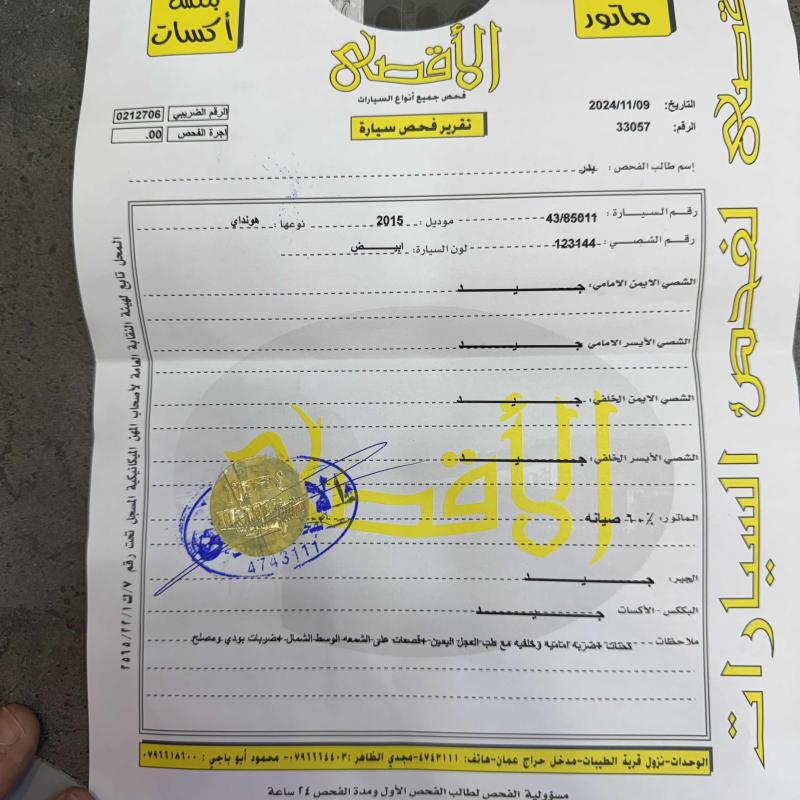 بكسه أكسات
ماتور
الأقصى
فحص جميع أنواع السيارات
تقرير فحص سيارة
التاريخ: 2024/11/09
الرقم: 33057
الرقم الضريبي 0212706
اجرة الفحص .00
إسم طالب الفحص : بدر
رقم السيارة : 43/85011 موديل: 2015 نوعها: هونداي
رقم الشصي: 123144 لون السيارة: ابيض
الشصي الايمن الامامي: جيد
الشصي الأيسر الامامي جيد
الشصي الايمن الخلفي: جيد
الشصي الأيسر الخلفي: جيد
الماتور: ٦٠٪ صيانه
الجير: جيد
البكس - الأكسات جيد
ملاحظات قصات +ضربه امامية وخلفيه مع طب العجل اليمين +قصعات على الشمعه الوسط الشمال +ضربات بودي ومصلح
الأقصى
4743111
المحل تابع لهيئة النقابة العامة لأصحاب المهن الميكانيكية المسجل تحت رقم
لفحص السيارات
الوحدات-نزول قرية الطيبات-مدخل حراج عمان-هاتف: ٤٧٤٣١١١-مجدي الظاهر :٠٧٩٦٦٦٤٤٠٣- محمود أبو باجي : ٠٧٩٦٦١٨٦٠٠
مسؤولية الفحص لطالب الفحص الأول ومدة الفحص ٢٤ ساعة